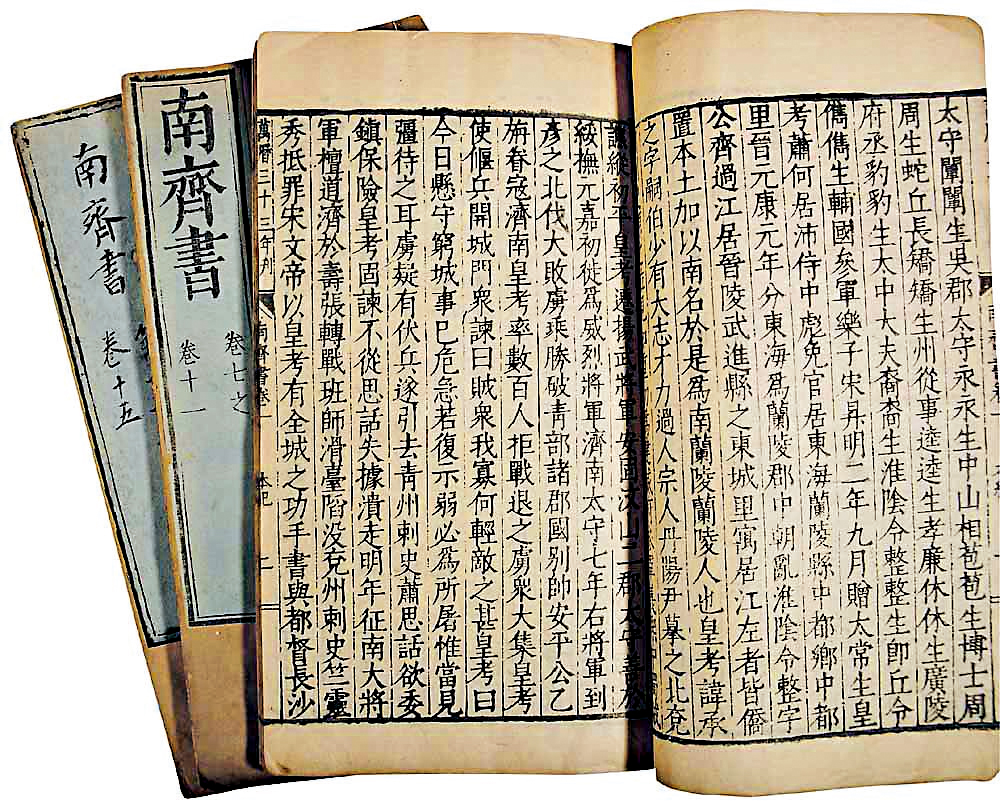 太守闡闡生吳郡太守永永生中山相苞苞生博士周
周生蛇丘長矯矯生州從事逵逵生孝廉休休生廣陵
府丞豹豹生太中大夫裔裔生淮陰令整整生即丘令
儁儁生輔國參軍樂子宋昇明二年九月贈太常生皇
考蕭何居沛侍中彪免官居東海蘭陵縣中都鄉中都
里晉元康元年分東海爲蘭陵郡中朝亂淮陰令整字
公齊過江居晉陵武進縣之東城里寓居江左者皆僑
置本土加以南名於是爲南蘭陵蘭陵人也皇考諱承
之字嗣伯少有大志才力過人宗人丹陽尹摹之北兗
譙縱初平皇考遷揚武將軍安固汶山二郡太守善於
綏撫元嘉初徙爲威烈將軍濟南太守七年右將軍到
彥之北伐大敗虜乘勝破青部諸郡國別帥安平公乙
旃眷寇濟南皇考率數百人拒戰退之虜衆大集皇考
使偃兵開城門衆諫曰賊衆我寡何輕敵之甚皇考曰
今日懸守窮城事已危急若復示弱必爲所屠惟當見
彊待之耳虜疑有伏兵遂引去青州刺史蕭思話欲委
鎮保險皇考固諫不從思話失據潰走明年征南大將
軍檀道濟於壽張轉戰班師滑臺陷没兗州刺史竺靈
秀抵罪宋文帝以皇考有全城之功手書與都督長沙
萬曆三十三年刊
南齊書卷一
本紀
二
南齊書
卷七之
卷十一
南齊書
卷十五